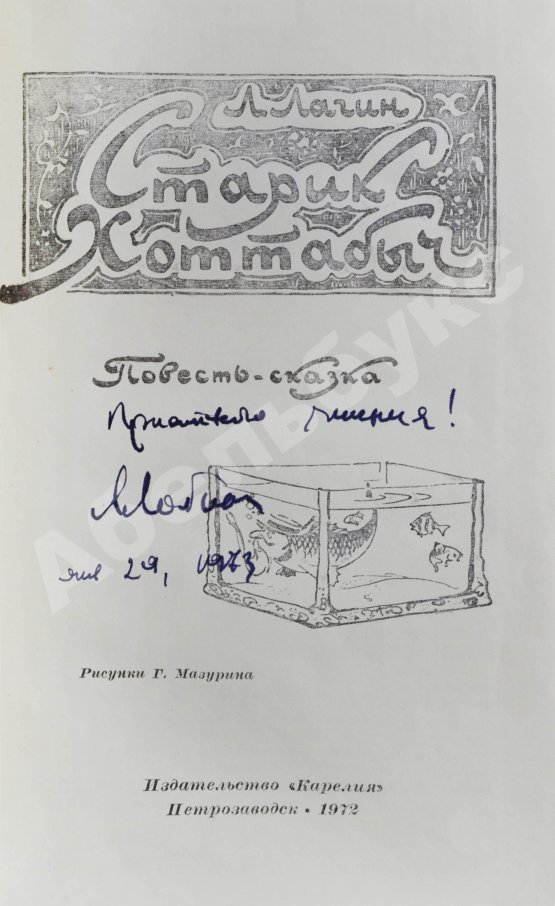 Л. Лагин
Старик
Хоттабыч
Повесть-сказка
Приятного чтения!
янв 29, 1973
Рисунки Г. Мазурина
Издательство «Карелия»
Петрозаводск • 1972
Абельбукс